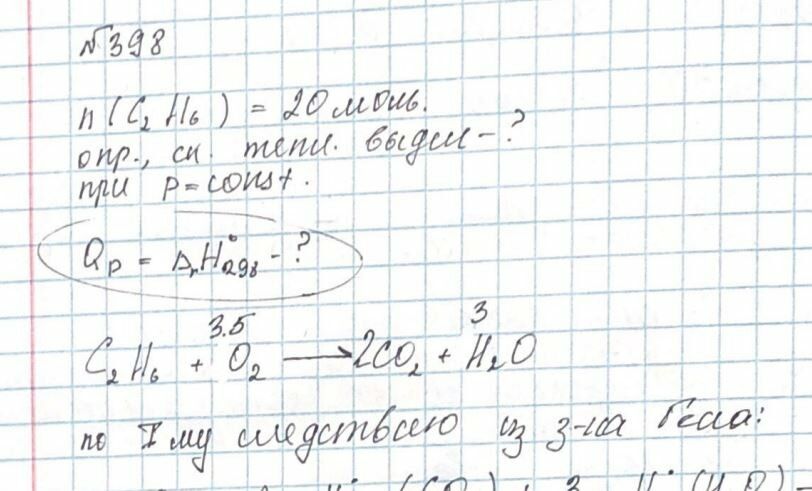 №398
n(C₂H₆) = 20 моль.
опр., ск. тепл. выдел - ?
при p = const.
Qp = ΔrH°298 - ?
C₂H₆ + 3.5 O₂ ⟶ 2CO₂ + 3 H₂O
по I му следствию из з-на Гесса:
H° (CO₂) + 3 H° (H₂O) -